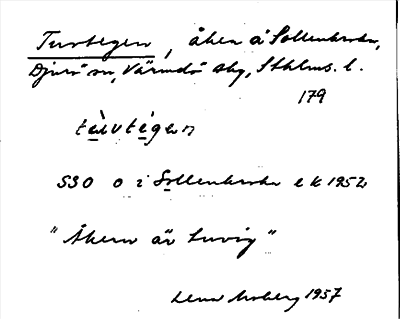 Tuvtegen, åker å Sollenkroka,
Djurö sn, Värmdö skg, Sthlms. l.
179
tùvtegen
SSO o i Sollenkroka ek 1952
"Åkern är tuvig"
Lena Moberg 1957